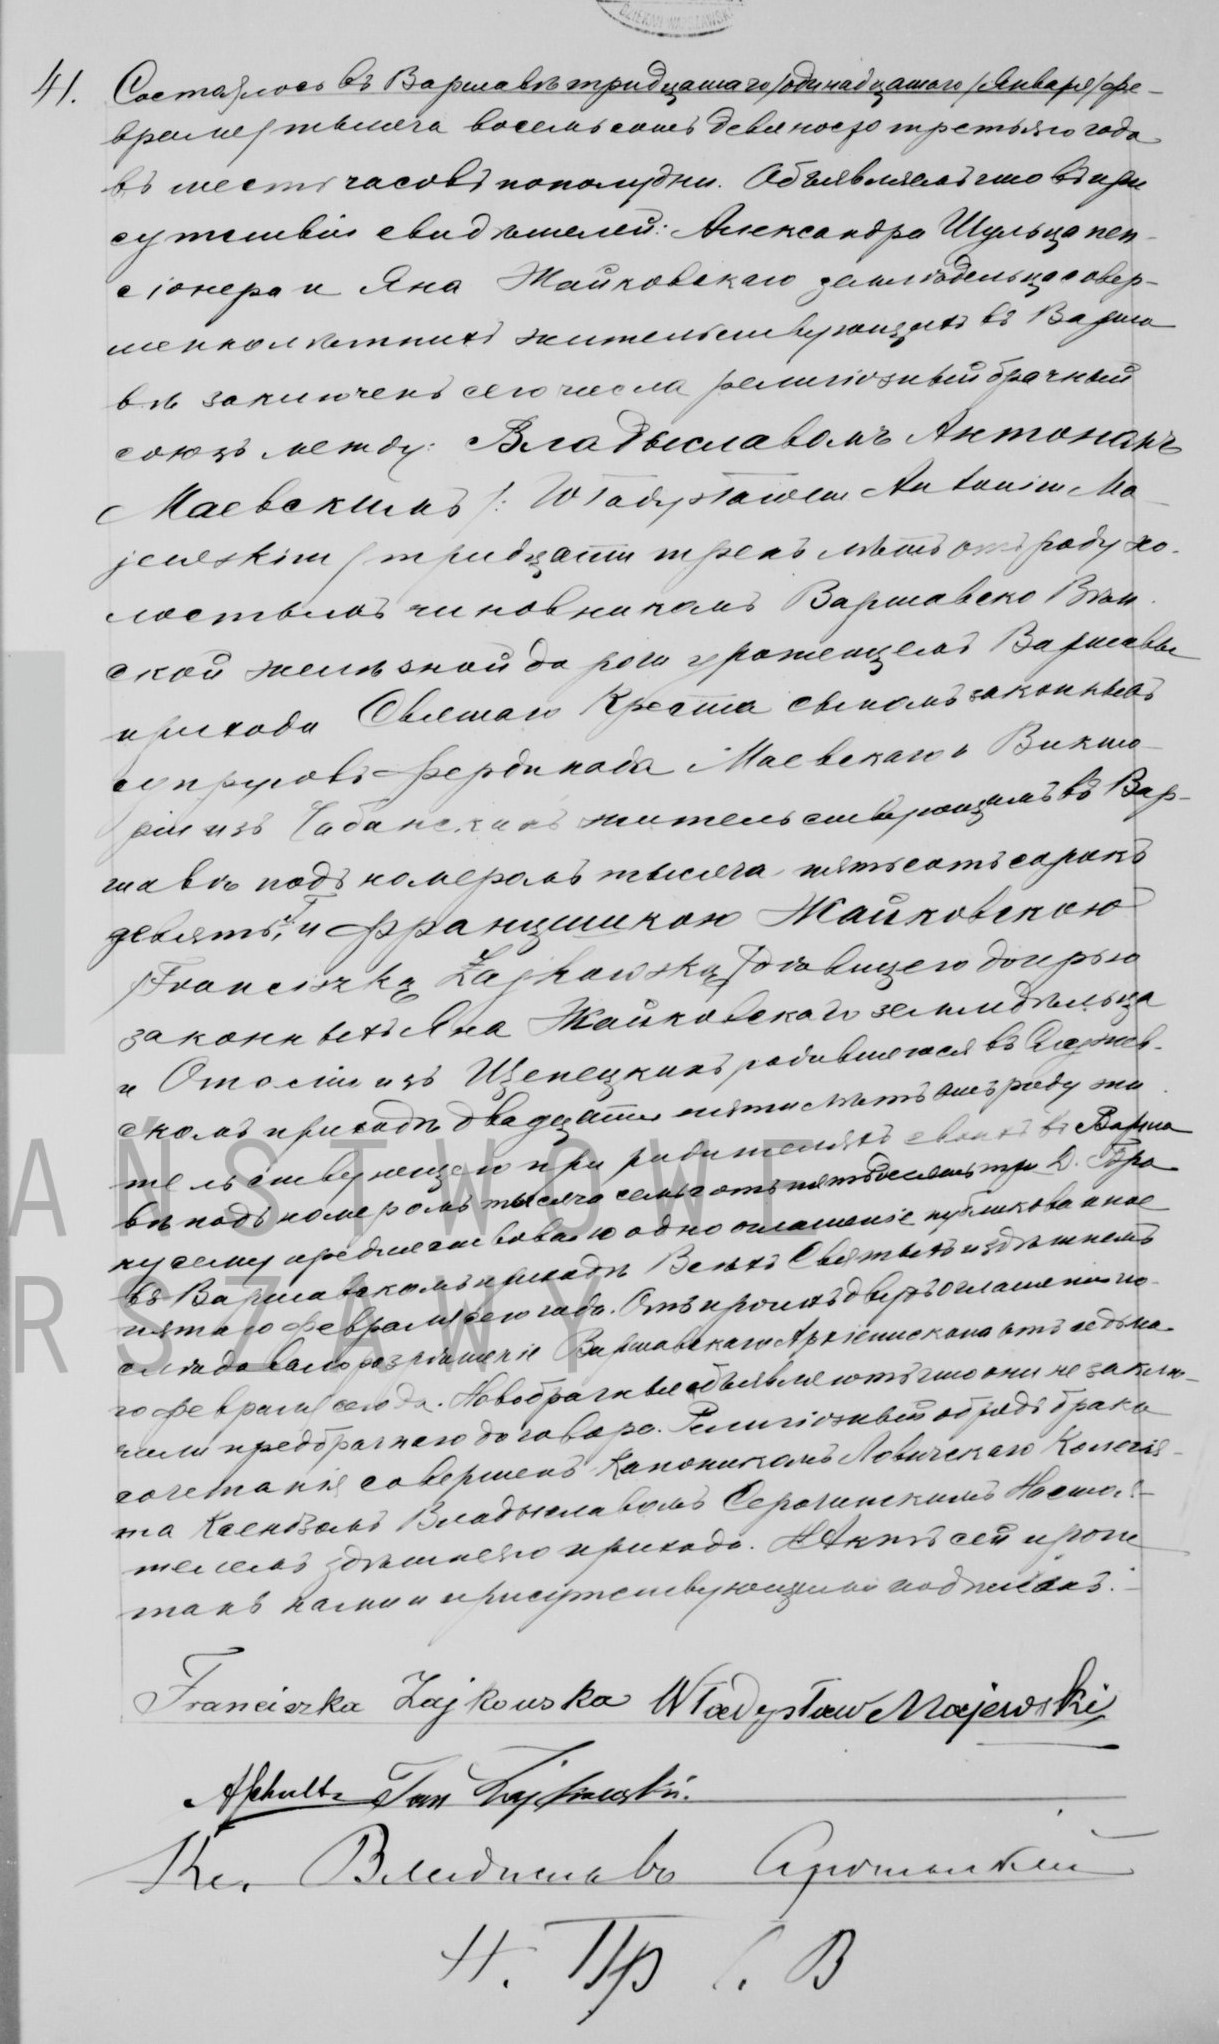 41. Состоялось въ Варшавѣ тридцатаго/одинадцатого/Января/фе-
враля/ тысяча восемьсотъ девяносто третьяго года
въ шесть часовъ пополудни. Объявляемъ что въ при
сутствіи свидѣтелей: Александра Шульца пен-
сіонера и Яна Жайковскаго земледѣльца совер-
шеннолѣтнихъ жительствующихъ въ Варша
вѣ заключенъ сего числа религіозный брачный
союзъ между: Владыславомъ Антонимъ
Маевскимъ /: Władysławem Antonim Ma-
jewskim / тридцати трехъ лѣтъ отъ роду хо-
лостымъ чиновникомъ Варшавско Вѣн-
ской желѣзной дороги уроженцемъ Варшавы
прихода Святаго Креста сыномъ законныхъ
супруговъ Фердинада Маевскаго и Викто-
ріи изъ жительствующимъ въ Вар-
шавѣ подъ номеромъ тысяча пятьсотъ сорокъ
девять, и Францишкою Жайковскою
/Franciszką Żajkowską/ дѣвицею дочерью
законныхъ Яна Жайковскаго земледѣльца
и Отоліи изъ Щепецкихъ родившеюся въ
скомъ приходѣ двадцати пяти лѣтъ отъ роду жи
тельствующею при родителяхъ своихъ въ Варша
вѣ подъ номеромъ тысяча семьсотъ пятьдесятъ три Д. Бра
ку сему предшествовало одно оглашеніе публикованное
въ Варшавскомъ приходѣ Всѣхъ Святыхъ и здѣшнемъ
пятаго февраля сего года. Отъ прочихъ двухъ оглашеній по-
слѣдовало разрѣшеніе Варшавскаго Архіепископа отъ седьма-
го февраля сего года. Новобрачные объявляютъ что они не заклю-
чили предбрачнаго договора. Религіозный обрядъ брако
сочетанія совершенъ Каноникомъ Ловичскаго Колегія-
та Ксендзомъ Владыславомъ Серочинскимъ Настоя-
телемъ здѣшняго прихода. Актъ сей прочи
танъ нами и присутствующими подписанъ.
Franciszka Żajkowska Władysław Majewski
ASchultz Jan Żajkowski.
Кс. Владиславъ Серочинскій
Н. Пр С. В